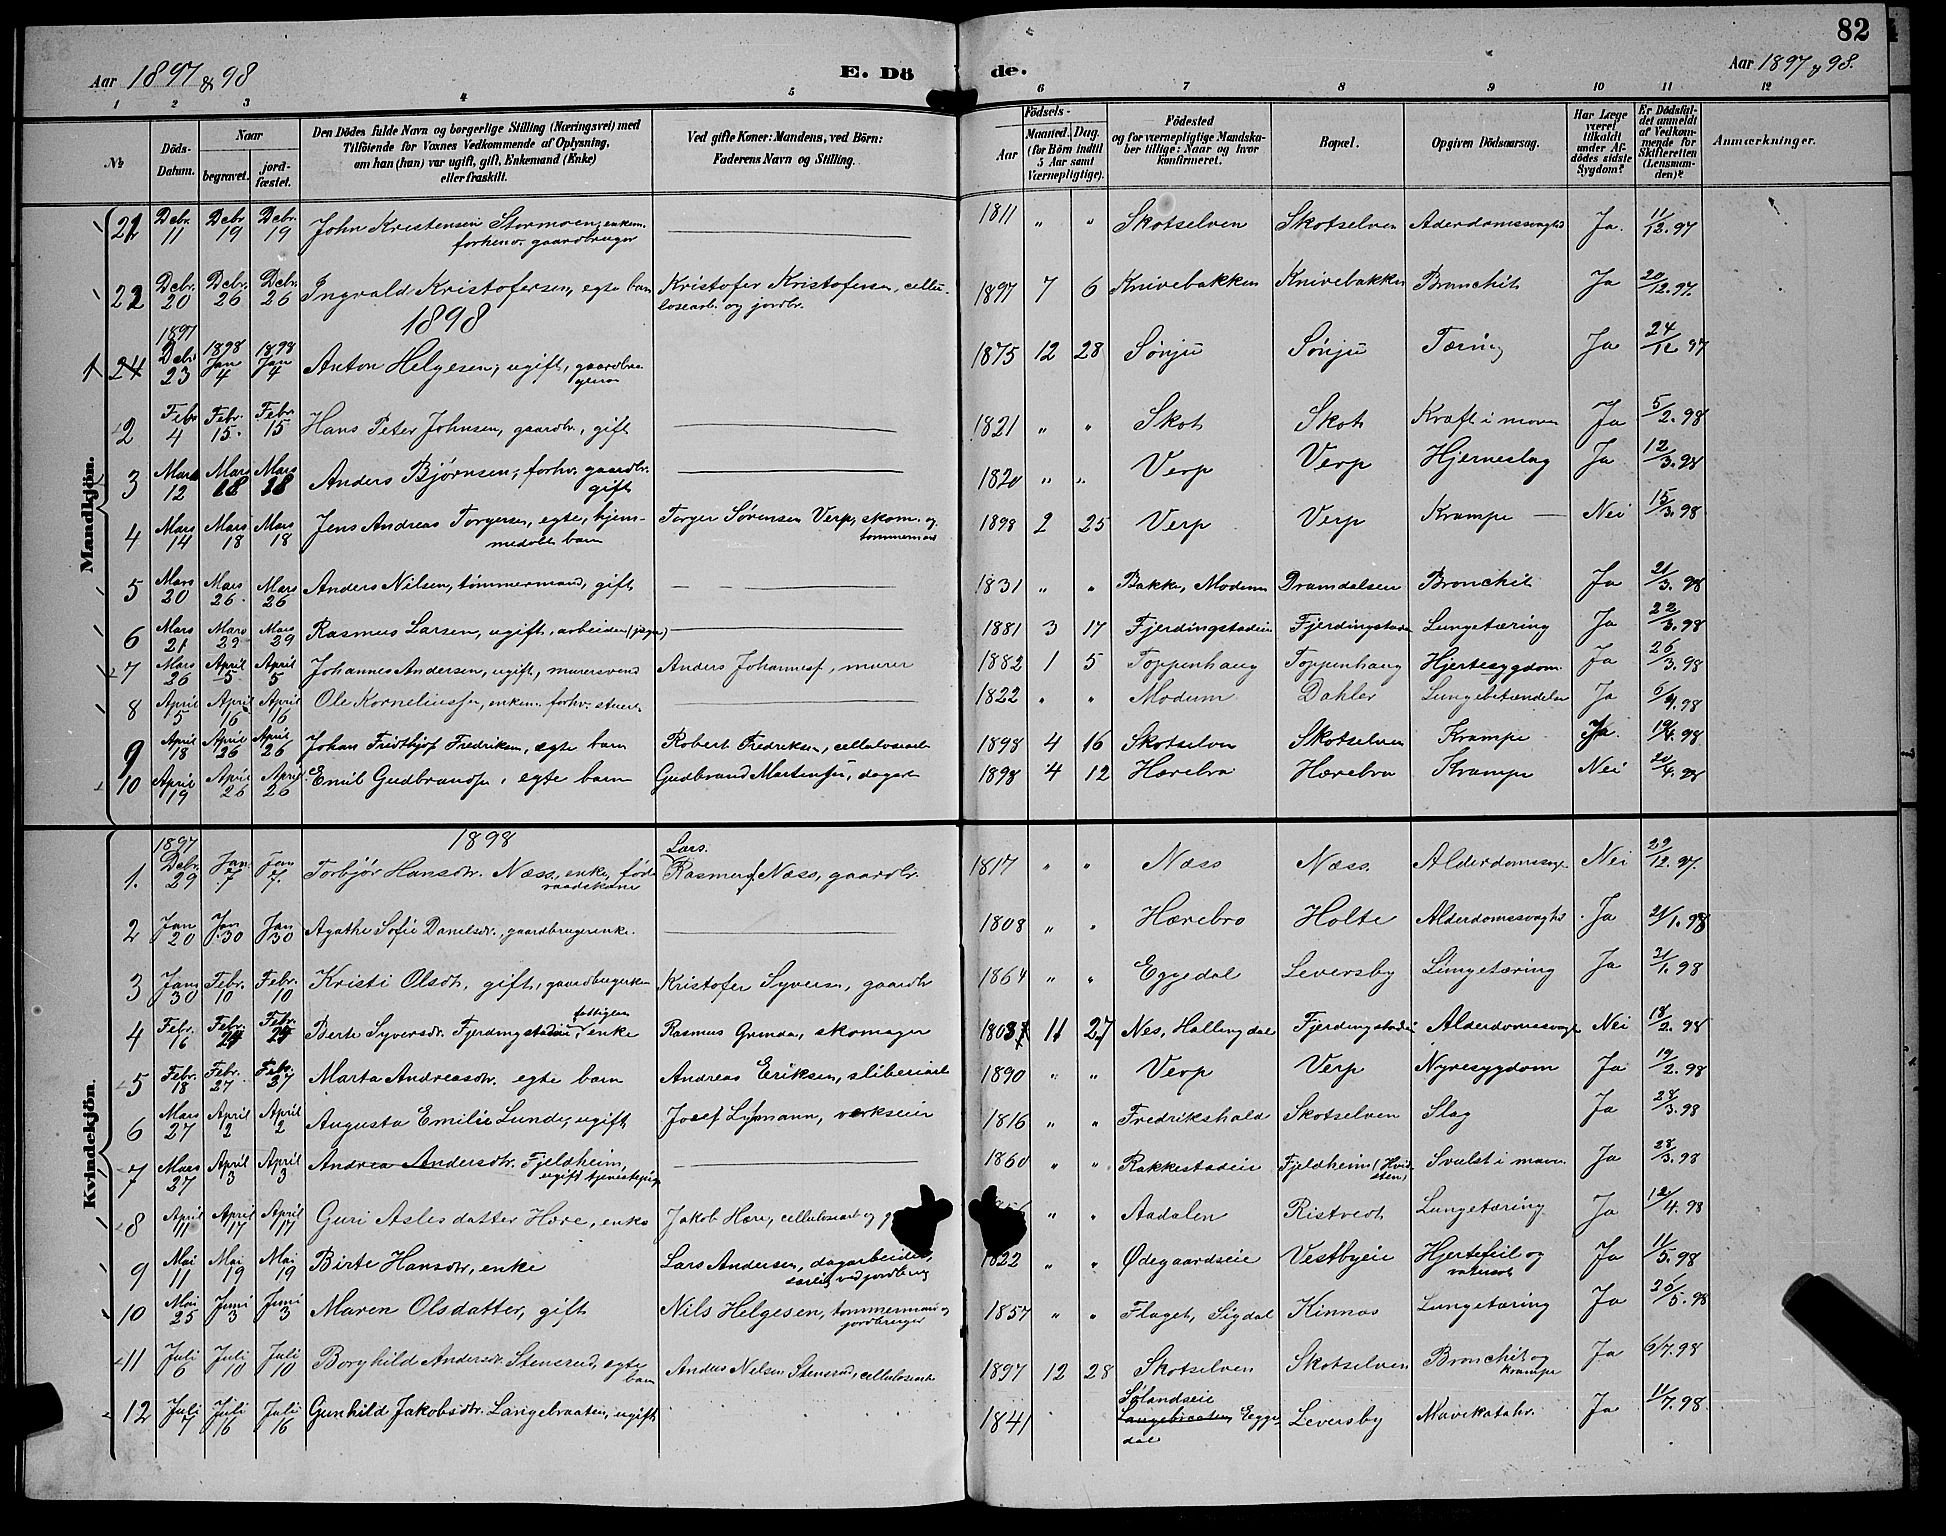 82
Aar 1897 & 98
E. Dö
de.
Aar 1897 & 98.
1 2 3 4 5 6 7 8 9 10 11 12
№
Döds-Datum.
Naar
begravet.
jord-fæstet.
Den Dödes fulde Navn og borgerlige Stilling (Næringsvei) med
Tilföiende for Voxnes Vedkommende af Oplysning,
om han (hun) var ugift, gift, Enkemand (Enke)
eller fraskilt.
Ved gifte Koner: Mandens, ved Börn:
Faderens Navn og Stilling.
Födsels-
Aar
Maaned. Dag.
(for Börn indtil
5 Aar samt
Værnepligtige).
Födested
og for værnepligtige Mandska-
ber tillige: Naar og hvor
konfirmeret.
Bopæl.
Opgiven Dödsaarsag.
Har Læge
været
tilkaldt
under Af-
dödes sidste
Sygdom?
Er Dödsfal-
det anmeldt
af Vedkom-
mende for
Skifteretten
(Lensman-
den)?
Anmærkninger.
Mandkjön.
21 Debr. 11 Debr 19 Debr. 19 John Kristensen Stormoen, enkem. forhenv. gaardbruger 1811 " " Skotselven Skotselven Aderdomssvaghed Ja. 11/12.97
22 Debr. 20 Debr. 26 Debr. 26 Ingvald Kristofersen, egte barn Kristofer Kristofersen, cellulosearb. og jordbr. 1897 7 6 Knivebakken Knivebakken Bronchit Ja 20/12.97.
1898
1 24 1897 Debr. 23 1898 Jan 4 1898 Jan 4 Anton Helgesen, ugift, 1875 12 28 Sønju Sønju Tæring Ja 24/12 97
2 Febr 4 Febr. 15. Febr. 15 Hans Peter Johnsen, gaardbr., gift 1821 " " Skot Skot Kræft i maven Ja 5/2.98
3 Mars 12 Mars 18 Mars 18 Anders Bjørnsen, forhv. gaardbr. gift 1820 " " Verp Verp Hjerneslag Ja 12/3.98
4 Mars 14 Mars 18 Mars 18 Jens Andreas Torgersen, egte, hjemmedøbt barn Torger Sørensen Verp, skom. og tømmermand 1898 2 25 Verp Verp Krampe Nei 15/3.98
5 Mars 20 Mars 26 Mars 26 Anders Nilsen, tømmermand, gift 1831 " " Bakke, Modum Dramdalseien Bronchit Ja 21/3.98
6 Mars 21 Mars 29 Mars 29 Rasmus Larsen, ugift, arbeider 1881 3 17 Fjerdingstadeie Fjerdingstade Lungetæring Ja 22/3.98
7 Mars 26 April 5 April 5 Johannes Andersen, ugift, murersvend Anders Johannesf, murer 1882 1 5 Toppenhaug Toppenhaug Hjertesygdom Ja 26/3.98
8 April 5 April 16 April 16 Ole Korneliussen, enkem. forhv. stuert 1822 " " Modum Dahler Lungebetændelse Ja 6/4.98
9 April 18 April 26 April 26 Johan Fridthjof Fredriksen, egte barn Robert Fredriksen, cellulosearb 1898 4 16 Skotselven Skotselven Krampe Ja. 19/4.98
10 April 19 April 26 April 26 Emil Gudbrandsen, egte barn Gudbrand Martensen, dagarb 1898 4 12 Hærebro Hærebro Krampe Nei 20/4.98
Kvindekjön.
1898
1. 1897 Debr. 29 Jan. 7 Jan 7. Torbjør Hansdtr. Næss, enke, føderaadskone Lars. Rasmusf Næss, gaardbr. 1817 " " Næss Næss. Alderdomssvag. Nei 29/12.97.
2 Jan 20 Jan 30 Jan 30 Agathe Sofie Danielsdtr., gaardbrugerenke. 1808 " " Hærebro Holte Alderdomssvaghed Ja 21/1.98
3 Jan 30 Febr. 10 Febr. 10 Kristi Olsdtr, gift, gaardbrugerkone Kristofer Syversen, gaardbr 1864 " " Eggedal Leversby Lungetæring Ja 31/1.98
4 Febr. 16 Febr. Febr. Berte Syversdtr. Fjerdingstadeie fattiglem enke Rasmus Grinda, skomager 11 27 Nes, Hallingdal Fjerdingstadeie Alderdomssvagh Nei 18/2.98
5 Febr. 18 Febr. 27 Febr. 27 Marta Andreasdtr. egte barn Andreas Eriksen, sliberiarb 1890 " " Verp Verp Nyresygdom Ja 19/2.98
6 Mars 27 April 2 April 2 Augusta Emilie Lunde, ugift Josef Lyhmann, værkseier 1816 " " Fredrikshald Skotselven Slag Ja 28/3.98
7 Mars 27 April 3 April 3 Andrea Andersdtr. Fjeldheim, ugift tjenestepige 1860 " " Rakkestadeie Fjeldheim (Hvidsten) Svulst i maven Ja 28/3.98
8 April 11 April 17 April 17 Guri Aslesdatter Hære, enke Jakob Hære, cellulosearb og " " Aadalen Ristvedt Lungetæring Ja 12/4.98
9 Mai 11 Mai 19 Mai 19 Birte Hansdtr, enke Lars Andersen, dagarbeider, særlig ved jordbrug 1822 " " Ødegaardseie Vestbyeie Hjertefeil og vatersot Ja 11/5.98
10 Mai 25 Juni 3 Juni 3 Maren Olsdatter, gift Nils Helgesen, tømmermand og jordbruger 1857 " " Flaget, Sigdal Kinnas Lungetæring Ja 26/5.98
11 Juli 6 Juli 10 Juli 10 Borghild Andersdtr. Stensrud, egte barn Anders Nilsen Stensrud, cellulosearb 1897 12 28 Skotselven Skotselven Bronchit og krampe Ja 6/7.98
12 Juli 7 Juli 16 Juli 16 Gunhild Jakobsdtr. Langebraaten, ugift 1841 Sølandseie Langebraaten Eggedal Leversby Mavekatahr. Ja 11/7.98